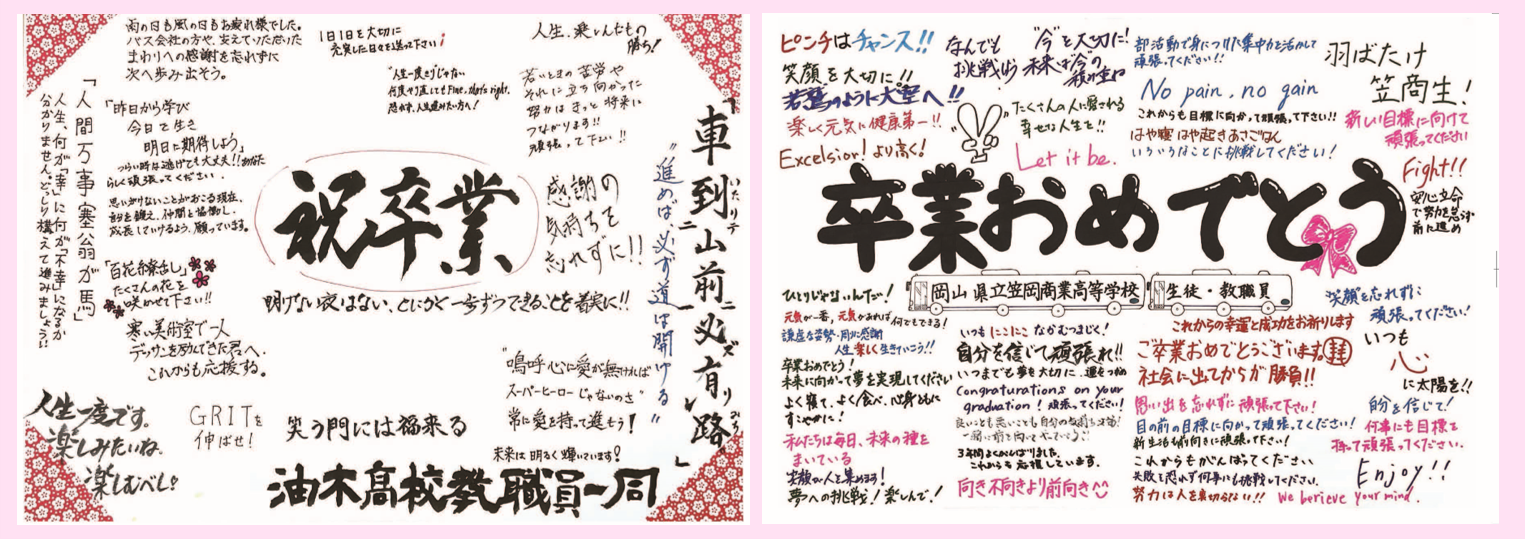 雨の日も風の日もお疲れ様でした。
バス会社の方や、支えていただいた
まわりへの感謝を忘れずに
次へ歩み出そう。
1日1日を大切に
充実した日々を送って下さい!
人生、楽しんだもの
勝ち!
"人生一度きりじゃない
何度やり直しても Fine, that's right.
若いときの苦労や
それに立ち向かった
努力はきっと将来に
つながります!!
頑張って下さい!!
「車到山前必有路」
いたりテ
ニ
ズ
リ
みち
"進めば必ず道は開ける"
「人間万事塞翁が馬」
人生、何が「幸」に何が「不幸」になるか
分かりません。どっしり構えて進みましょう!!
「昨日から学び
今日で生き
明日に期待しよう」
つらい時は逃げても大丈夫!!あなた
らしく頑張ってください。
思い切りないことがおこる現在、
自分を鍛え、仲間と協働し、
成長していけるよう、願っています。
祝卒業
感謝の
気持ちを
忘れずに!!
「百花斉放」
たくさんの花を
咲かせて下さい!!
明けない夜はない、とにかく一歩ずつできることを着実に!!
寒い美術室で一人
デッサンを励んできた君へ、
これからも応援する。
"嗚呼心に愛が無ければ
スーパーヒーローじゃないのさ"
常に愛を持って進もう!
人生一度です。
楽しみたいね。
楽しむべし!
GRITを
伸ばせ!
笑う門には福来る
未来は明るく輝いています!
油木高校教職員一同
ピンチはチャンス!!
なんでも
挑戦め
"今"を大切に!
未来は今の
積み重ね
部活動で身につけた集中力を活かして
頑張ってください!!
羽ばたけ
笠商生!
笑顔を大切に!!
若鷲のように大空へ!!
楽しく元気に健康第一!!
Excelsior! より高く!
たくさんの人に愛される
幸せな人生を!!
Let it be.
No pain, no gain
これからも目標に向かって頑張って下さい!!
はや寝 はや起き あさごはん
いろいろなことに挑戦してください!
新しい目標に向けて
頑張ってください
Fight!!
安心立命
で努力を忘れず
前に進め
卒業おめでとう
岡山県立笠岡商業高等学校
生徒・教職員
ひとりじゃないんだ!
元気が一番、元気があれば何でもできる!
謙虚な姿勢・周りに感謝
人生楽しく生きていこう!!
卒業おめでとう!
未来に向かって夢を実現してください
よく寝て、よく食べ、心身ともに
すこやかに!
私たちは毎日、未来の種を
まいている
笑顔が人を集める!
夢への挑戦!楽しんで!
いつもにこにこ なかむつまじく!
自分を信じて頑張れ!!
いつまでも夢を大切に、運をつかめ
Congraturations on your
graduation! 頑張ってください!
良いことも悪いことも自分の教訓と法則!
一緒に前を向いてやっていこう!
3年間よくがんばりました。
これからも応援しています。
向き不向きより前向き
これからの幸運と成功をお祈りします
ご卒業おめでとうございます
社会に出てからが勝負!!
思い出を忘れずに頑張って下さい!
目の前の目標に向かって頑張ってください!
新生活も前向きに頑張って下さい!
これからもがんばってください
失敗を恐れず何事にも挑戦してください。
努力は人を裏切らない!! We berieve your mind.
笑顔を忘れずに
頑張ってください!
いつも
心
に太陽を!!
自分を信じて!
何事にも目標を
持って頑張ってください。
Enjoy!!